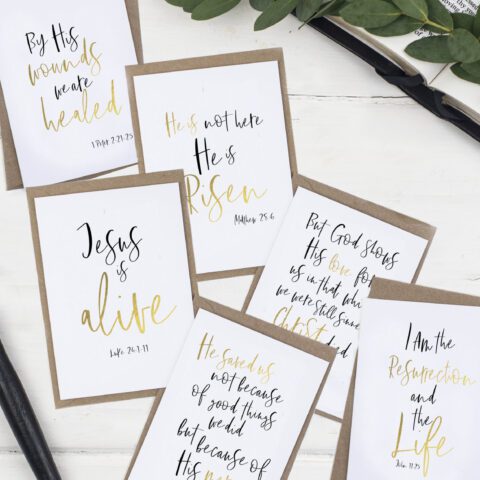 By His
wounds
we are
healed
1 Peter 2:21-25
He is not here
He is
Risen
Matthew 28:6
Jesus
is
alive
Luke 24:1-17
But God shows
His love for
us in that, while
we were still sinners
Christ
He saved us
not because
of good things
we did
but because of
His
I Am the
Resurrection
and
the
Life
John 11:25